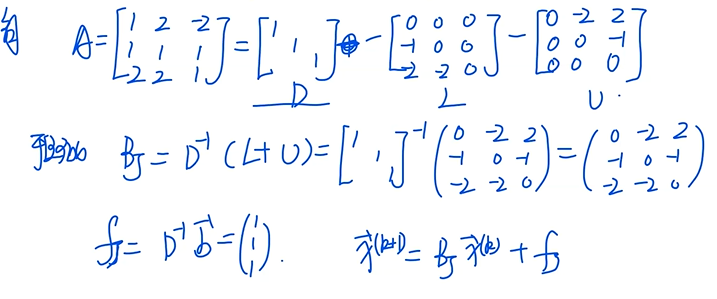 解 A = [1 2 -2; 1 1 1; 2 2 1] = [1 1 1] - [0 0 0; -1 0 0; -2 -2 0] - [0 -2 2; 0 0 -1; 0 0 0]
D L U.
B_J = D^{-1} (L+U) = [1 1 1]^{-1} (0 -2 2; -1 0 -1; -2 -2 0) = (0 -2 2; -1 0 -1; -2 -2 0)
f_J = D^{-1} \vec{b} = (1; 1; 1). \vec{x}^{(k+1)} = B_J \vec{x}^{(k)} + f_J